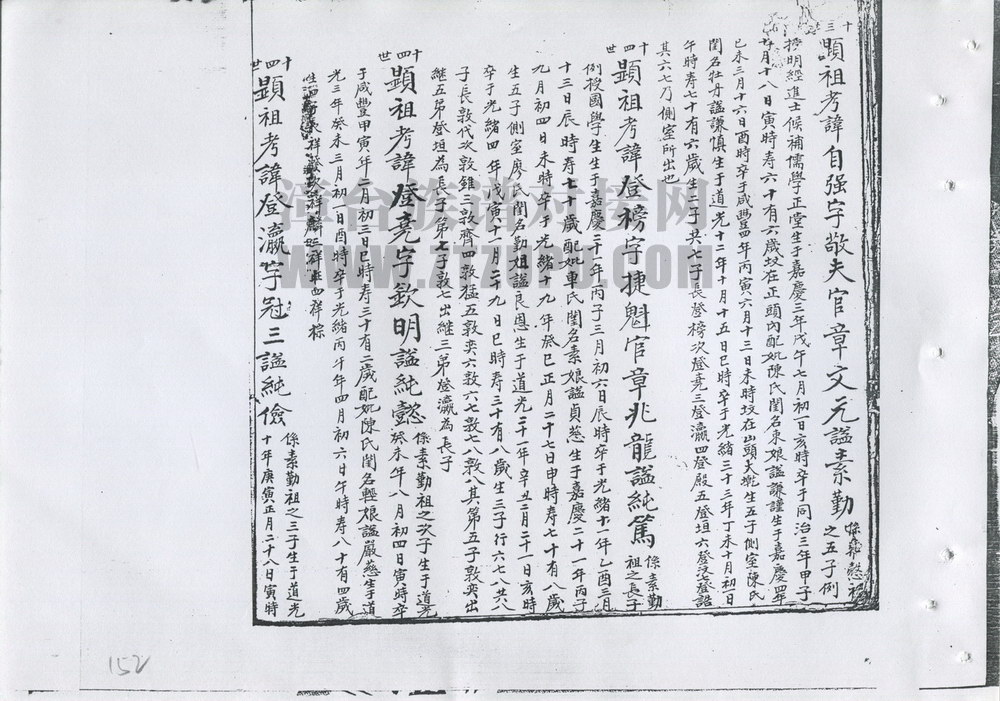 十三
顕祖考諱自强字敬夫官章文元謚素勤
之五子例
授明經進士候補儒學正堂生于嘉慶三年戊午七月初一日亥時卒于同治三年甲子
月十八日寅時寿六十有六歲坟在正頭內配妣陳氏閨名東娘謚謙謹生于嘉慶四年
己未三月十六日酉時卒于咸豐四年丙寅六月十三日未時坟在山頭大 生五子側室陳氏
閨名牡丹謚謙慎生于道光十二年十月十五日巳時卒于光緒三十三年丁未十月初一日
午時寿七十有六歲生二子共七子長登榜次登堯三登瀛四登殿五登垣六登 登
其六七乃側室所出也
十四世
顕祖考諱登榜字捷魁官章兆龍謚純篤
係素勤
祖之長子
例授國學生生于嘉慶二十一年丙子三月初六日辰時卒于光緒十一年乙酉三月
十三日辰時寿七十歲配妣車氏閨名素娘謚貞慈生于嘉慶二十一年丙子
九月初四日未時卒于光緒十九年癸巳正月二十七日申時寿七十有八歲
生五子側室廖氏閨名勤姐謚良恩生于道光二十一年辛丑二月二十一日亥時
卒于光緒四年戊寅十一月二十九日巳時寿三十有八歲生三子行六七八共八
子長敦代次敦錐三敦齊四敦猛五敦奕六敦六七敦七八敦八其第五子敦奕出
継五弟登垣為長子第七子敦七出継三弟登瀛為長子
十四世
顕祖考諱登堯字欽明謚純懿
係素勤祖之次子生于道光
癸未年八月初四日寅時卒
于咸豐甲寅年二月初三日巳時寿三十有二歲配妣陳氏閨名輕娘謚嚴慈生于道
光三年癸未三月初一日酉時卒于光緒丙午年四月初六日午時寿八十有四歲
生四 祥 次祥麟三祥車四祥棕
十四世
顕祖考諱登瀛字冠三謚純儉
係素勤祖之三子生于道光
十年庚寅正月二十八日寅時
152
漳台族谱对接网
www.ztzupu.com